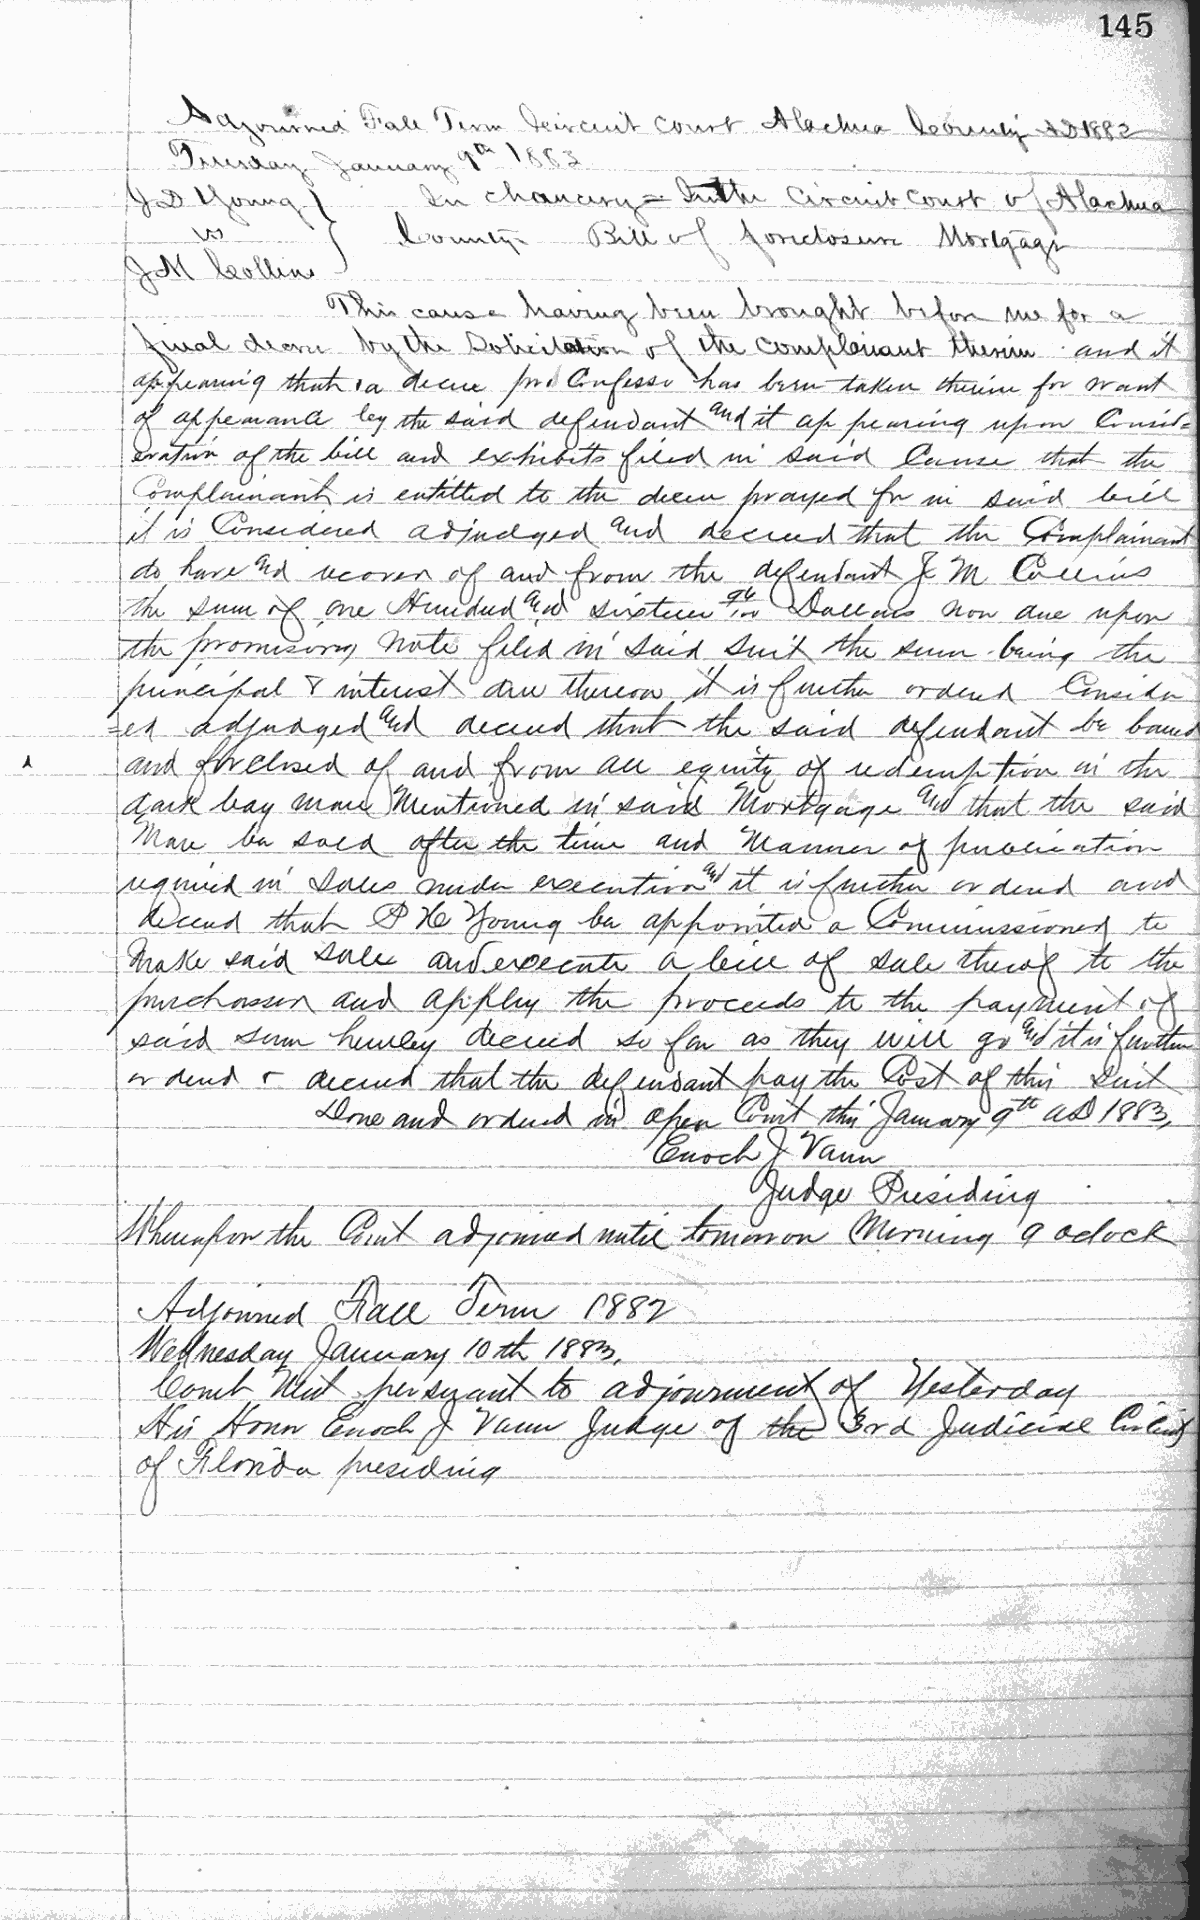 145
Adjourned Fall Term Circuit Court Alachua County AD 1882
Tuesday January 9th 1883
J D Young } In chancery = In the Circuit Court of Alachua
vs } County Bill of foreclosure Mortgage
J M Collins
This cause having been brought before me for a
final decree by the Solicitation of the complainant therein and it
appearing that a decree pro Confesso has been taken therein for want
of appearance by the said defendant and it appearing upon Consid=
eration of the bill and exhibits filed in said Cause that the
Complainant is entitled to the decree prayed for in said bill
it is Considered adjudged and decreed that the Complainant
do have and recover of and from the defendant J M Collins
the sum of one Hundred and sixteen /100 Dollars now due upon
the promisory Note filed in said Suit the sum being the
principal & interest due thereon it is further ordered Consider
=ed adjudged and decreed that the said defendant be barred
and forclosed of and from all equity of redemption in the
dark bay mare Mentioned in said Mortgage and that the said
Mare be sold after the time and Manner of publication
required in Sales under execution and it is further ordered and
decreed that P H Young be appointed a Commissioner to
Make said Sale and execute a bill of sale therof to the
purchasser and appley the proceeds to the payment of
said sum hereby decreed so far as they will go and it is further
ordered & decreed that the defendant pay the Cost of this Suit
Done and ordered in open Court this January 9th AD 1883,
Enoch J Vann
Judge Presiding
Whereupon the Court adjourned until tomorrow Morning 9 oclock
Adjourned Fall Term 1882
Wednesday January 10th 1883,
Court Met persuant to adjournment of Yesterday
His Honor Enoch J Vann Judge of the 3rd Judicial Circuit
of Florida presiding